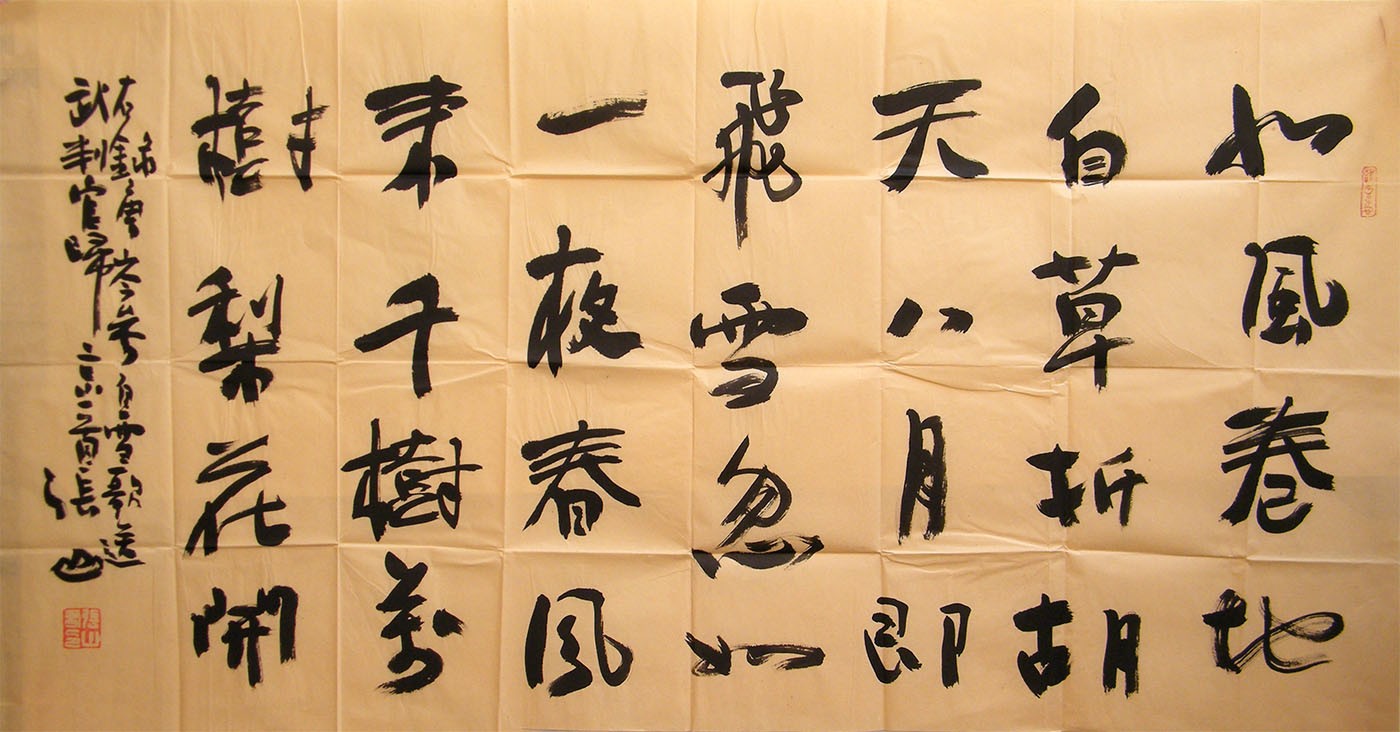 北風卷地
白草折胡
天八月即
飛雪忽如
一夜春風
来千樹萬
樹梨花開
右錄唐岑参白雪歌送
武判官歸 張山